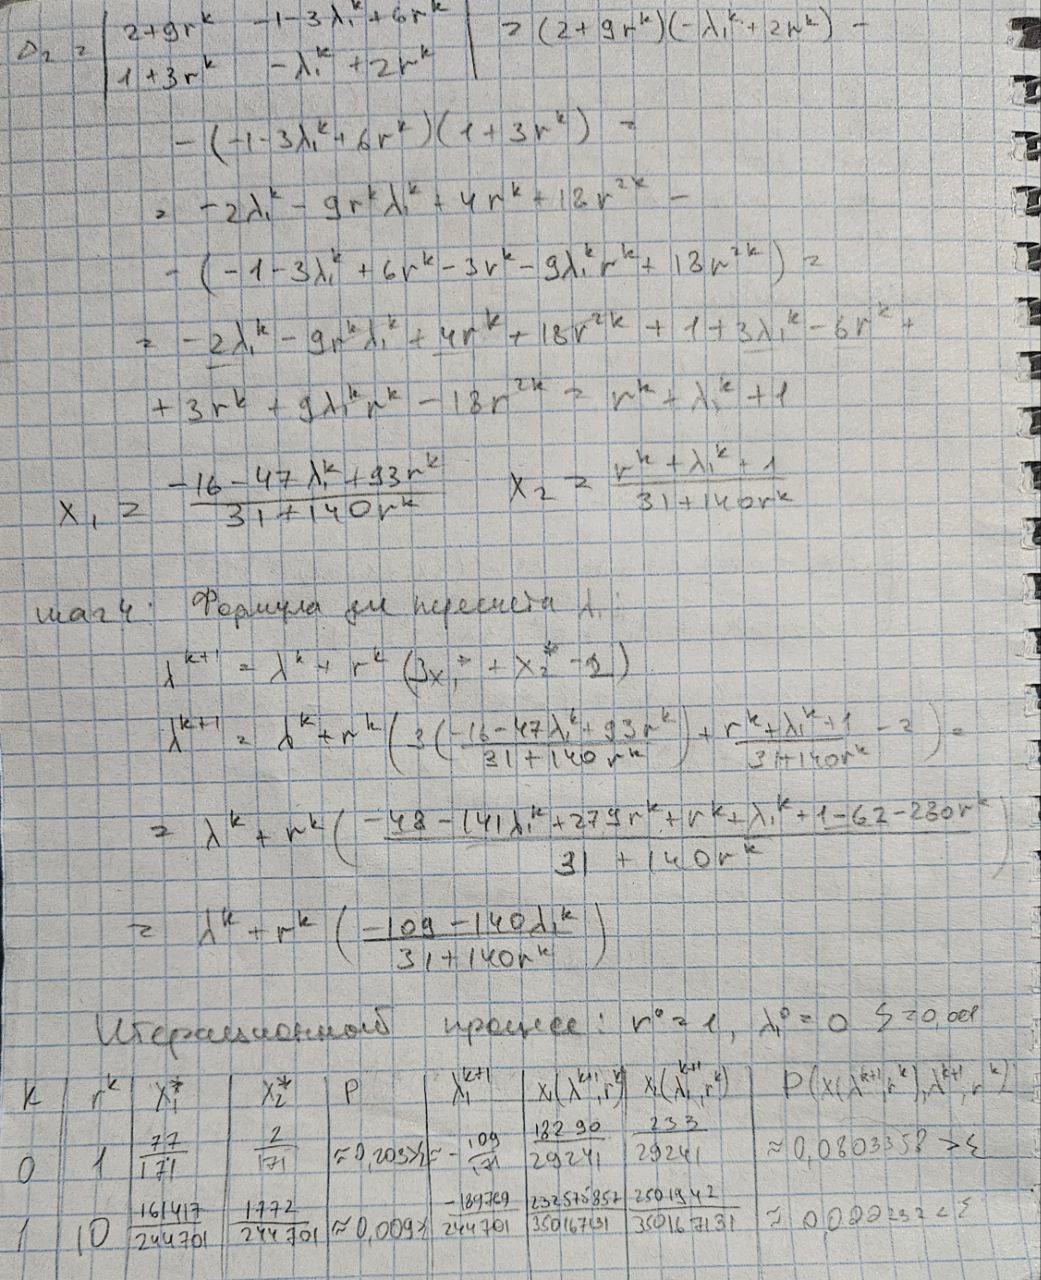 Δ₂ = | 2+9r^k   -1-3λ₁^k+6r^k | = (2+9r^k)(-λ₁^k+2r^k) -
| 1+3r^k   -λ₁^k+2r^k |
-(-1-3λ₁^k+6r^k)(1+3r^k) =
= -2λ₁^k - 9r^kλ₁^k + 4r^k + 18r^2k -
-(-1-3λ₁^k + 6r^k - 3r^k - 9λ₁^k r^k + 18r^2k) =
= -2λ₁^k - 9r^kλ₁^k + 4r^k + 18r^2k + 1 + 3λ₁^k - 6r^k +
+ 3r^k + 9λ₁^k r^k - 18r^2k = r^k + λ₁^k + 1
x₁ = (-16-47λ₁^k+93r^k)/(31+140r^k)   x₂ = (r^k+λ₁^k+1)/(31+140r^k)
шаг 4: Формула для пересчета λ₁:
λ^k+1 = λ^k + r^k (3x₁* + x₂* - 2)
λ^k+1 = λ^k + r^k (3((-16-47λ₁^k+93r^k)/(31+140r^k)) + (r^k+λ₁^k+1)/(31+140r^k) - 2) =
= λ^k + r^k ((-48-141λ₁^k+279r^k+r^k+λ₁^k+1-62-280r^k)/(31+140r^k))
= λ^k + r^k ((-109-140λ₁^k)/(31+140r^k))
Итерационный процесс: r⁰=1, λ₁⁰=0 ξ=0,001
k | r^k | x₁* | x₂* | P | λ₁^k+1 | x₁(λ^k+1, r^k) | x₁(λ₁^k+1, r^k) | P(x(λ^k+1, r^k), λ^k+1, r^k)
0 | 1 | 77/171 | 2/171 | ≈0,203 | = -109/171 | 18290/29241 | 233/29241 | ≈0,0803358 >ξ
1 | 10 | 161417/244701 | 1772/244701 | ≈0,009 | -189769/244701 | 232575857/350167131 | 2501942/350167131 | ≈ 0,000232 < ξ